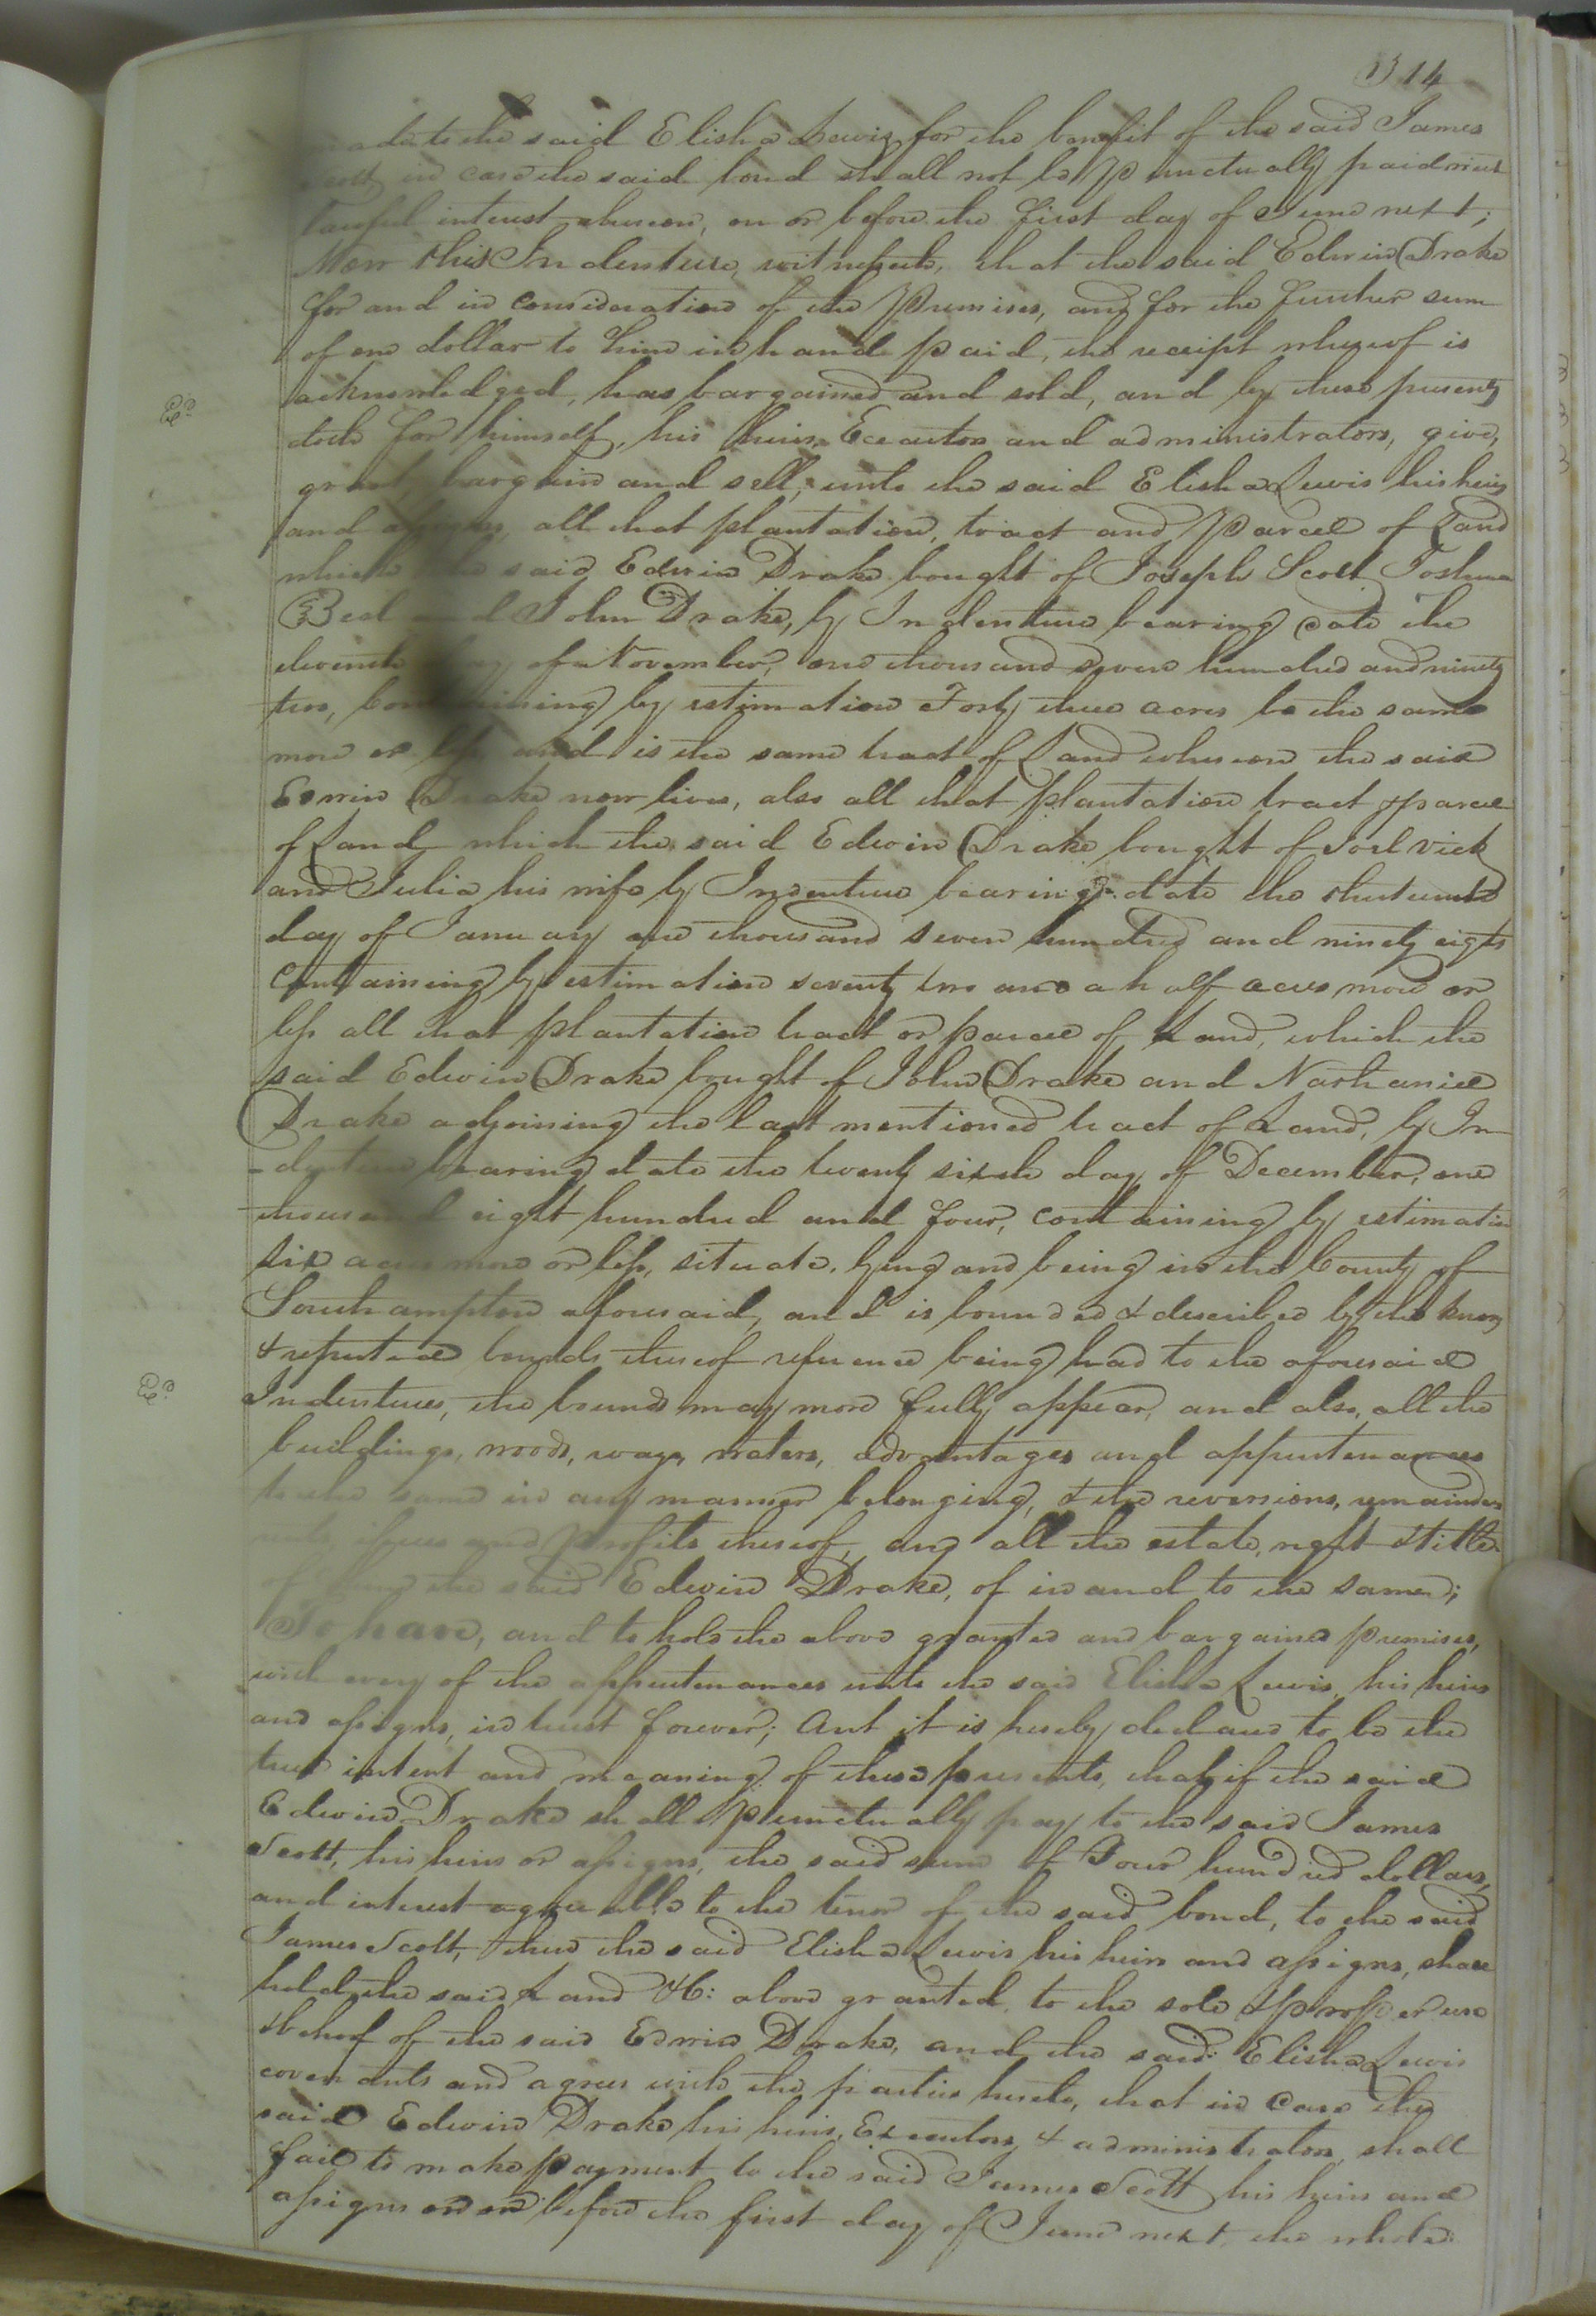 314
made to the said Elisha Lewis for the benefit of the said James
Scott in case the said bond shall not be punctually paid with
lawful interest thereon, on or before the first day of June next;
Now this Indenture, witnesseth, that the said Edwin Drake
for and in consideration of the premises, and for the further sum
of one dollar to him in hand paid, the receipt whereof is
acknowledged, has bargained and sold, and by these presents
doth for himself, his heirs, Executors and administrators, give,
grant, bargain and sell, unto the said Elisha Lewis his heirs
and assigns, all that plantation, tract and parcel of Land
which the said Edwin Drake bought of Joseph Scott Joshua
and John Drake, by Indenture bearing date the
eleventh day of November, one thousand seven hundred and ninety
two, containing by estimation Forty three acres be the same
more or less and is the same tract of Land whereon the said
Edwin Drake now lives, also all that plantation tract & parcel
of Land which the said Edwin Drake bought of Joel Vick
and Julia his wife by Indenture bearing date the thirteenth
day of January one thousand seven hundred and ninety eight
Containing by estimation seventy two and a half acres more or
less all that plantation tract or parcel of Land, which the
said Edwin Drake bought of John Drake and Nathaniel
Drake adjoining the last mentioned tract of Land, by In
-denture bearing date the twenty sixth day of December, one
thousand eight hundred and four, containing by estimation
six acres more or less, situate, lying and being in the County of
Southampton aforesaid, and is bounded & described by the known
& reputed bounds thereof reference being had to the aforesaid
Indentures, the bounds may more fully appear, and also, all the
buildings, woods, ways, waters, advantages and appurtenances
to the same in any manner belonging, & the reversions, remainders
rents, issues and profits thereof, and all the estate, right & title
of him the said Edwin Drake, of in and to the same;
To have, and to hold the above granted and bargained premises,
with every of the appurtenances unto the said Elisha Lewis, his heirs
and assigns, in trust forever; And it is hereby declared to be the
true intent and meaning of these presents, that if the said
Edwin Drake shall punctually pay to the said James
Scott, his heirs or assigns, the said sum of Four hundred dollars,
and interest agreeable to the tenor of the said bond, to the said
James Scott, then the said Elisha Lewis his heirs and assigns, shall
hold the said Land &C: above granted, to the sole & proper use
& behoof of the said Edwin Drake, and the said Elisha Lewis
covenants and agrees with the parties hereto, that in case the
said Edwin Drake his heirs, Executors & administrators, shall
fail to make payment to the said James Scott his heirs and
assigns on or before the first day of June next, the whole